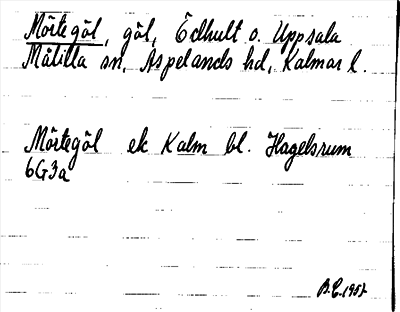 Mörtegöl, göl, Ödhult o. Uppsala
Målilla sn, Aspelands hd, Kalmar l.
Mörtegöl ek Kalm bl. Hagelsrum
6G3a
B.E. 1957